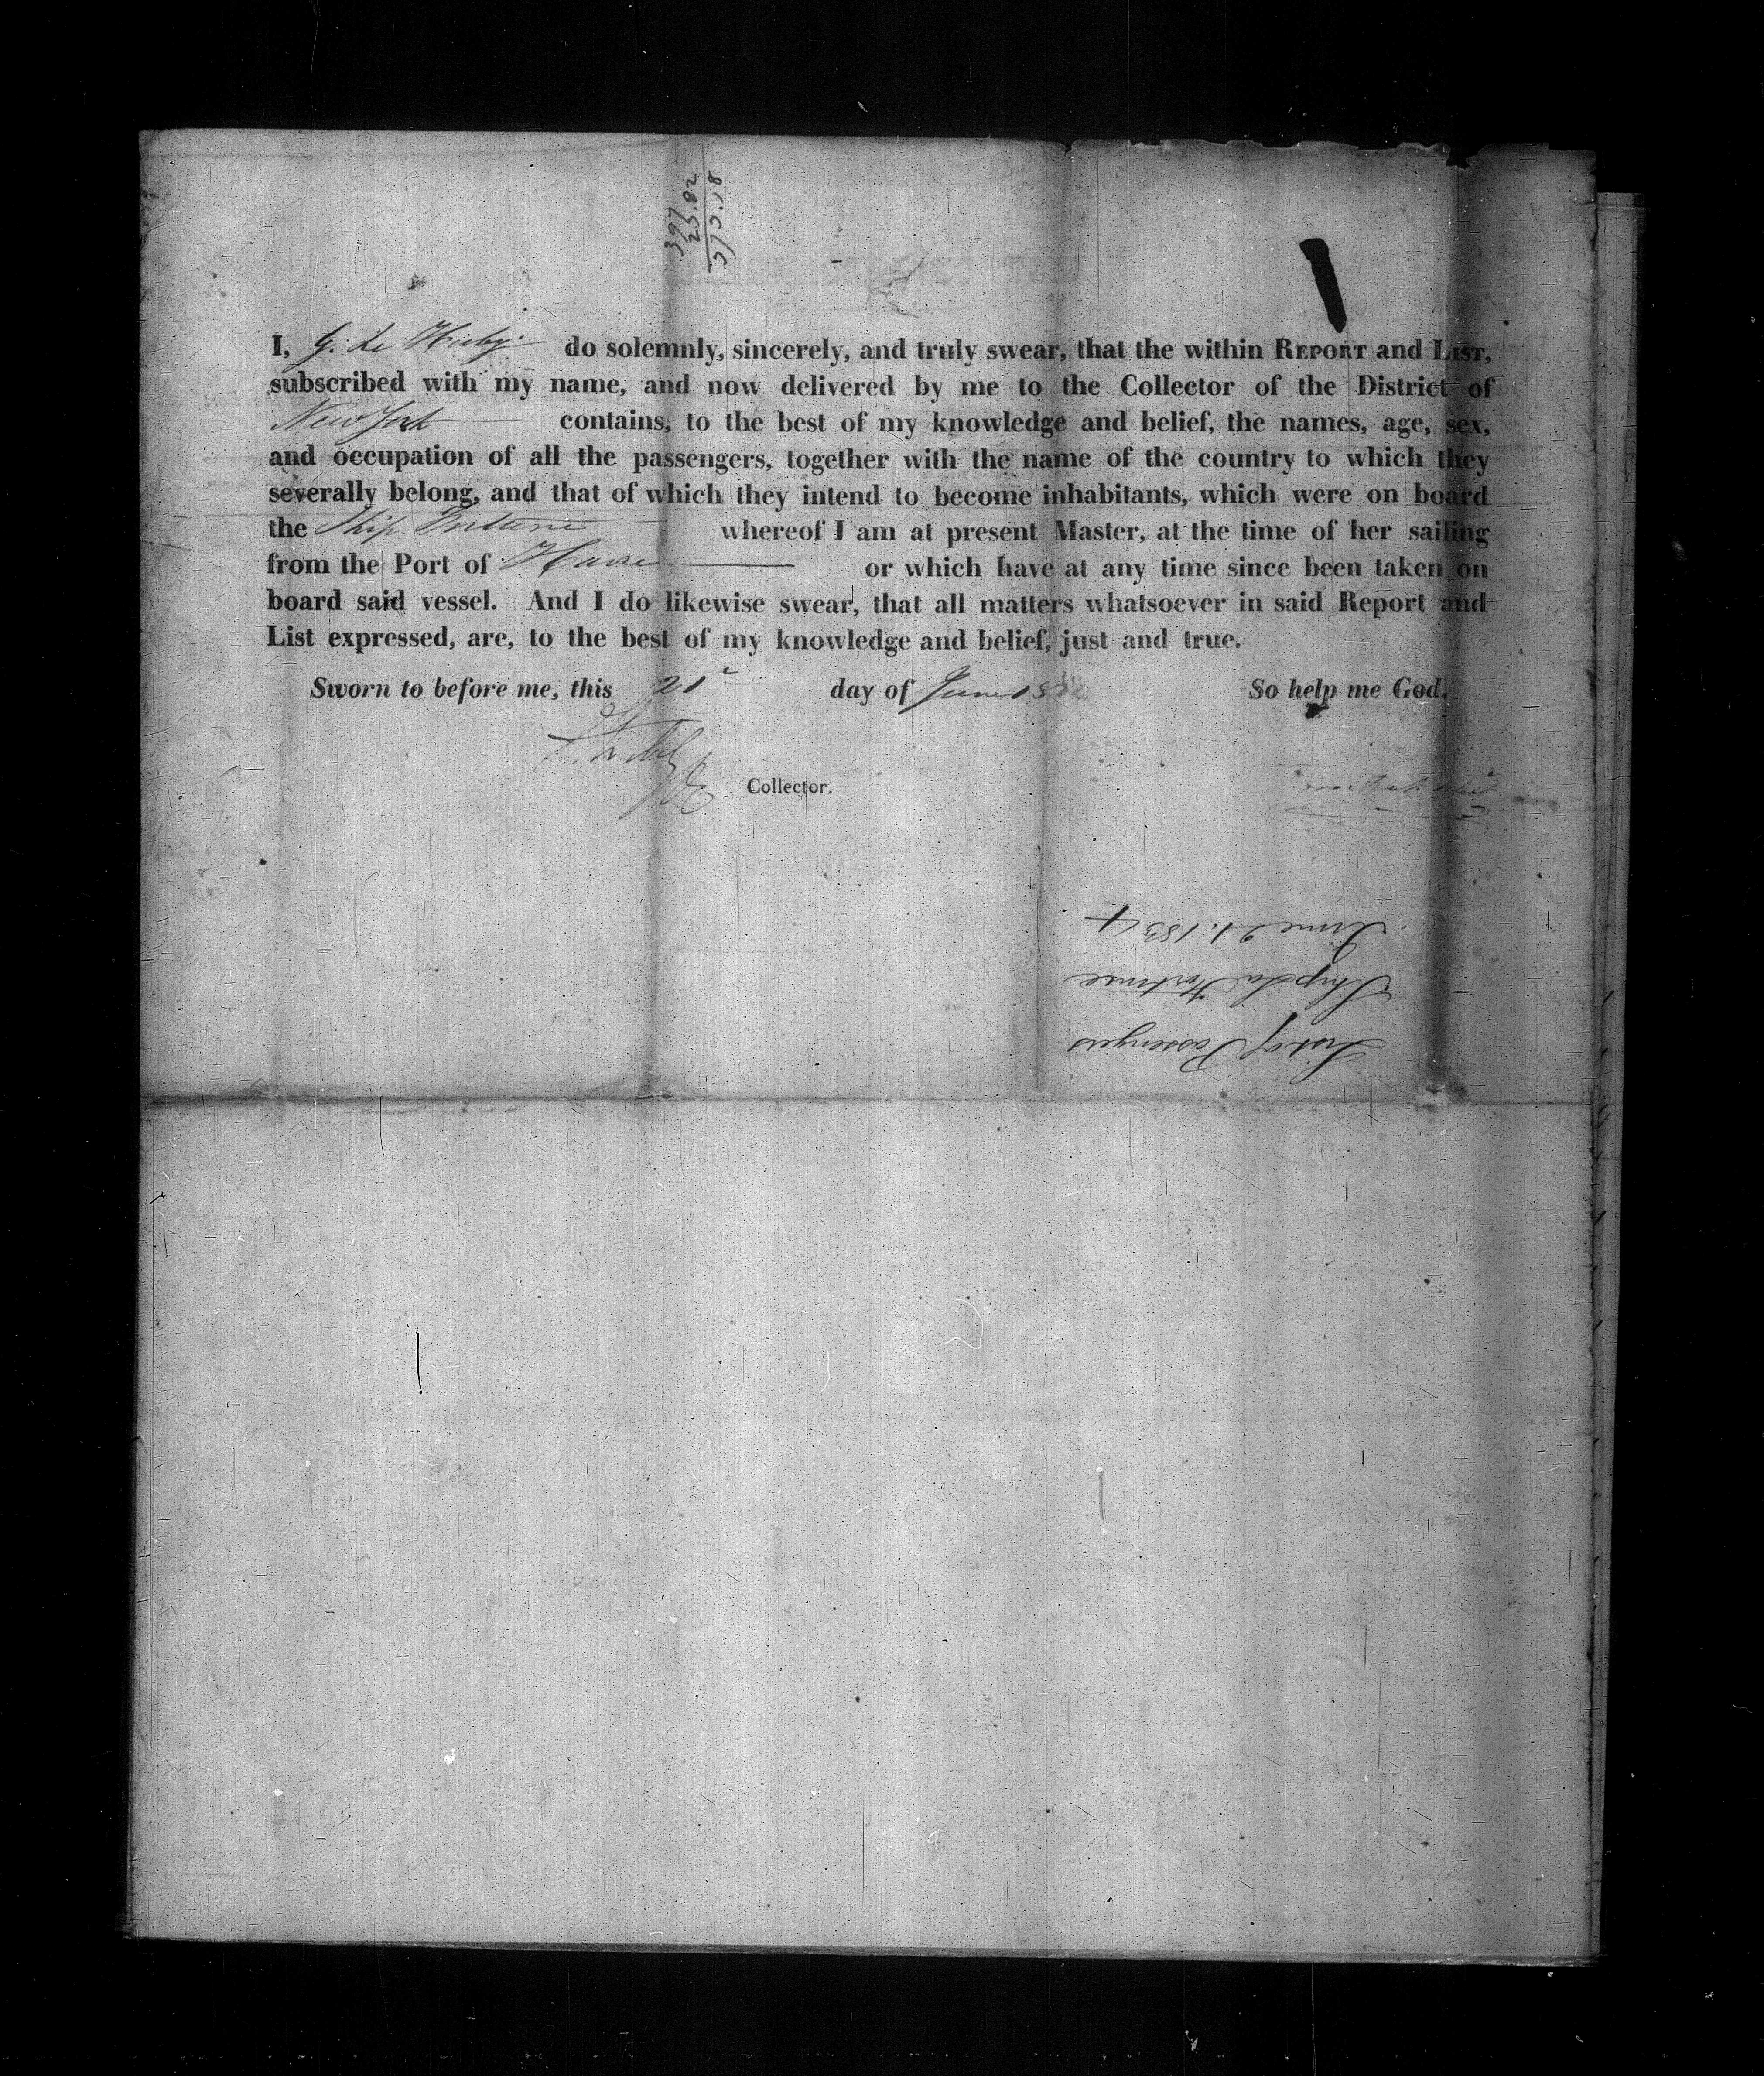 397
23.82
373.18
I, G. De do solemnly, sincerely, and truly swear, that the within REPORT and LIST,
subscribed with my name, and now delivered by me to the Collector of the District of
New York contains, to the best of my knowledge and belief, the names, age, sex,
and occupation of all the passengers, together with the name of the country to which they
severally belong, and that of which they intend to become inhabitants, which were on board
the Ship Fortune whereof I am at present Master, at the time of her sailing
from the Port of Havre or which have at any time since been taken on
board said vessel. And I do likewise swear, that all matters whatsoever in said Report and
List expressed, are, to the best of my knowledge and belief, just and true.
Sworn to before me, this 21 day of June So help me God.
Collector.
List of Passengers
Ship La Fortune
June 21. 1834